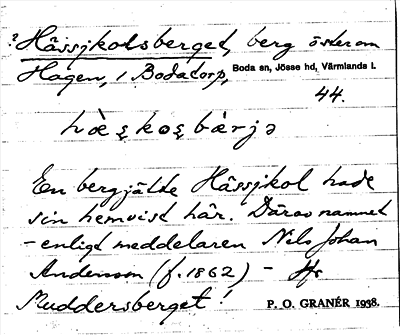 ? Hässjkolsberget, berg öster om
Hagen, i Bodatorp, Boda sn, Jösse hd, Värmlands l.
44.
hàȩkoȩbàrjə
En bergjätte Hässjkol hade
sin hemvist här. Därav namnet
– enligt meddelaren Nils Johan
Andersson (f. 1862) – Jfr
Muddersberget! P. O. GRANÉR 1938.